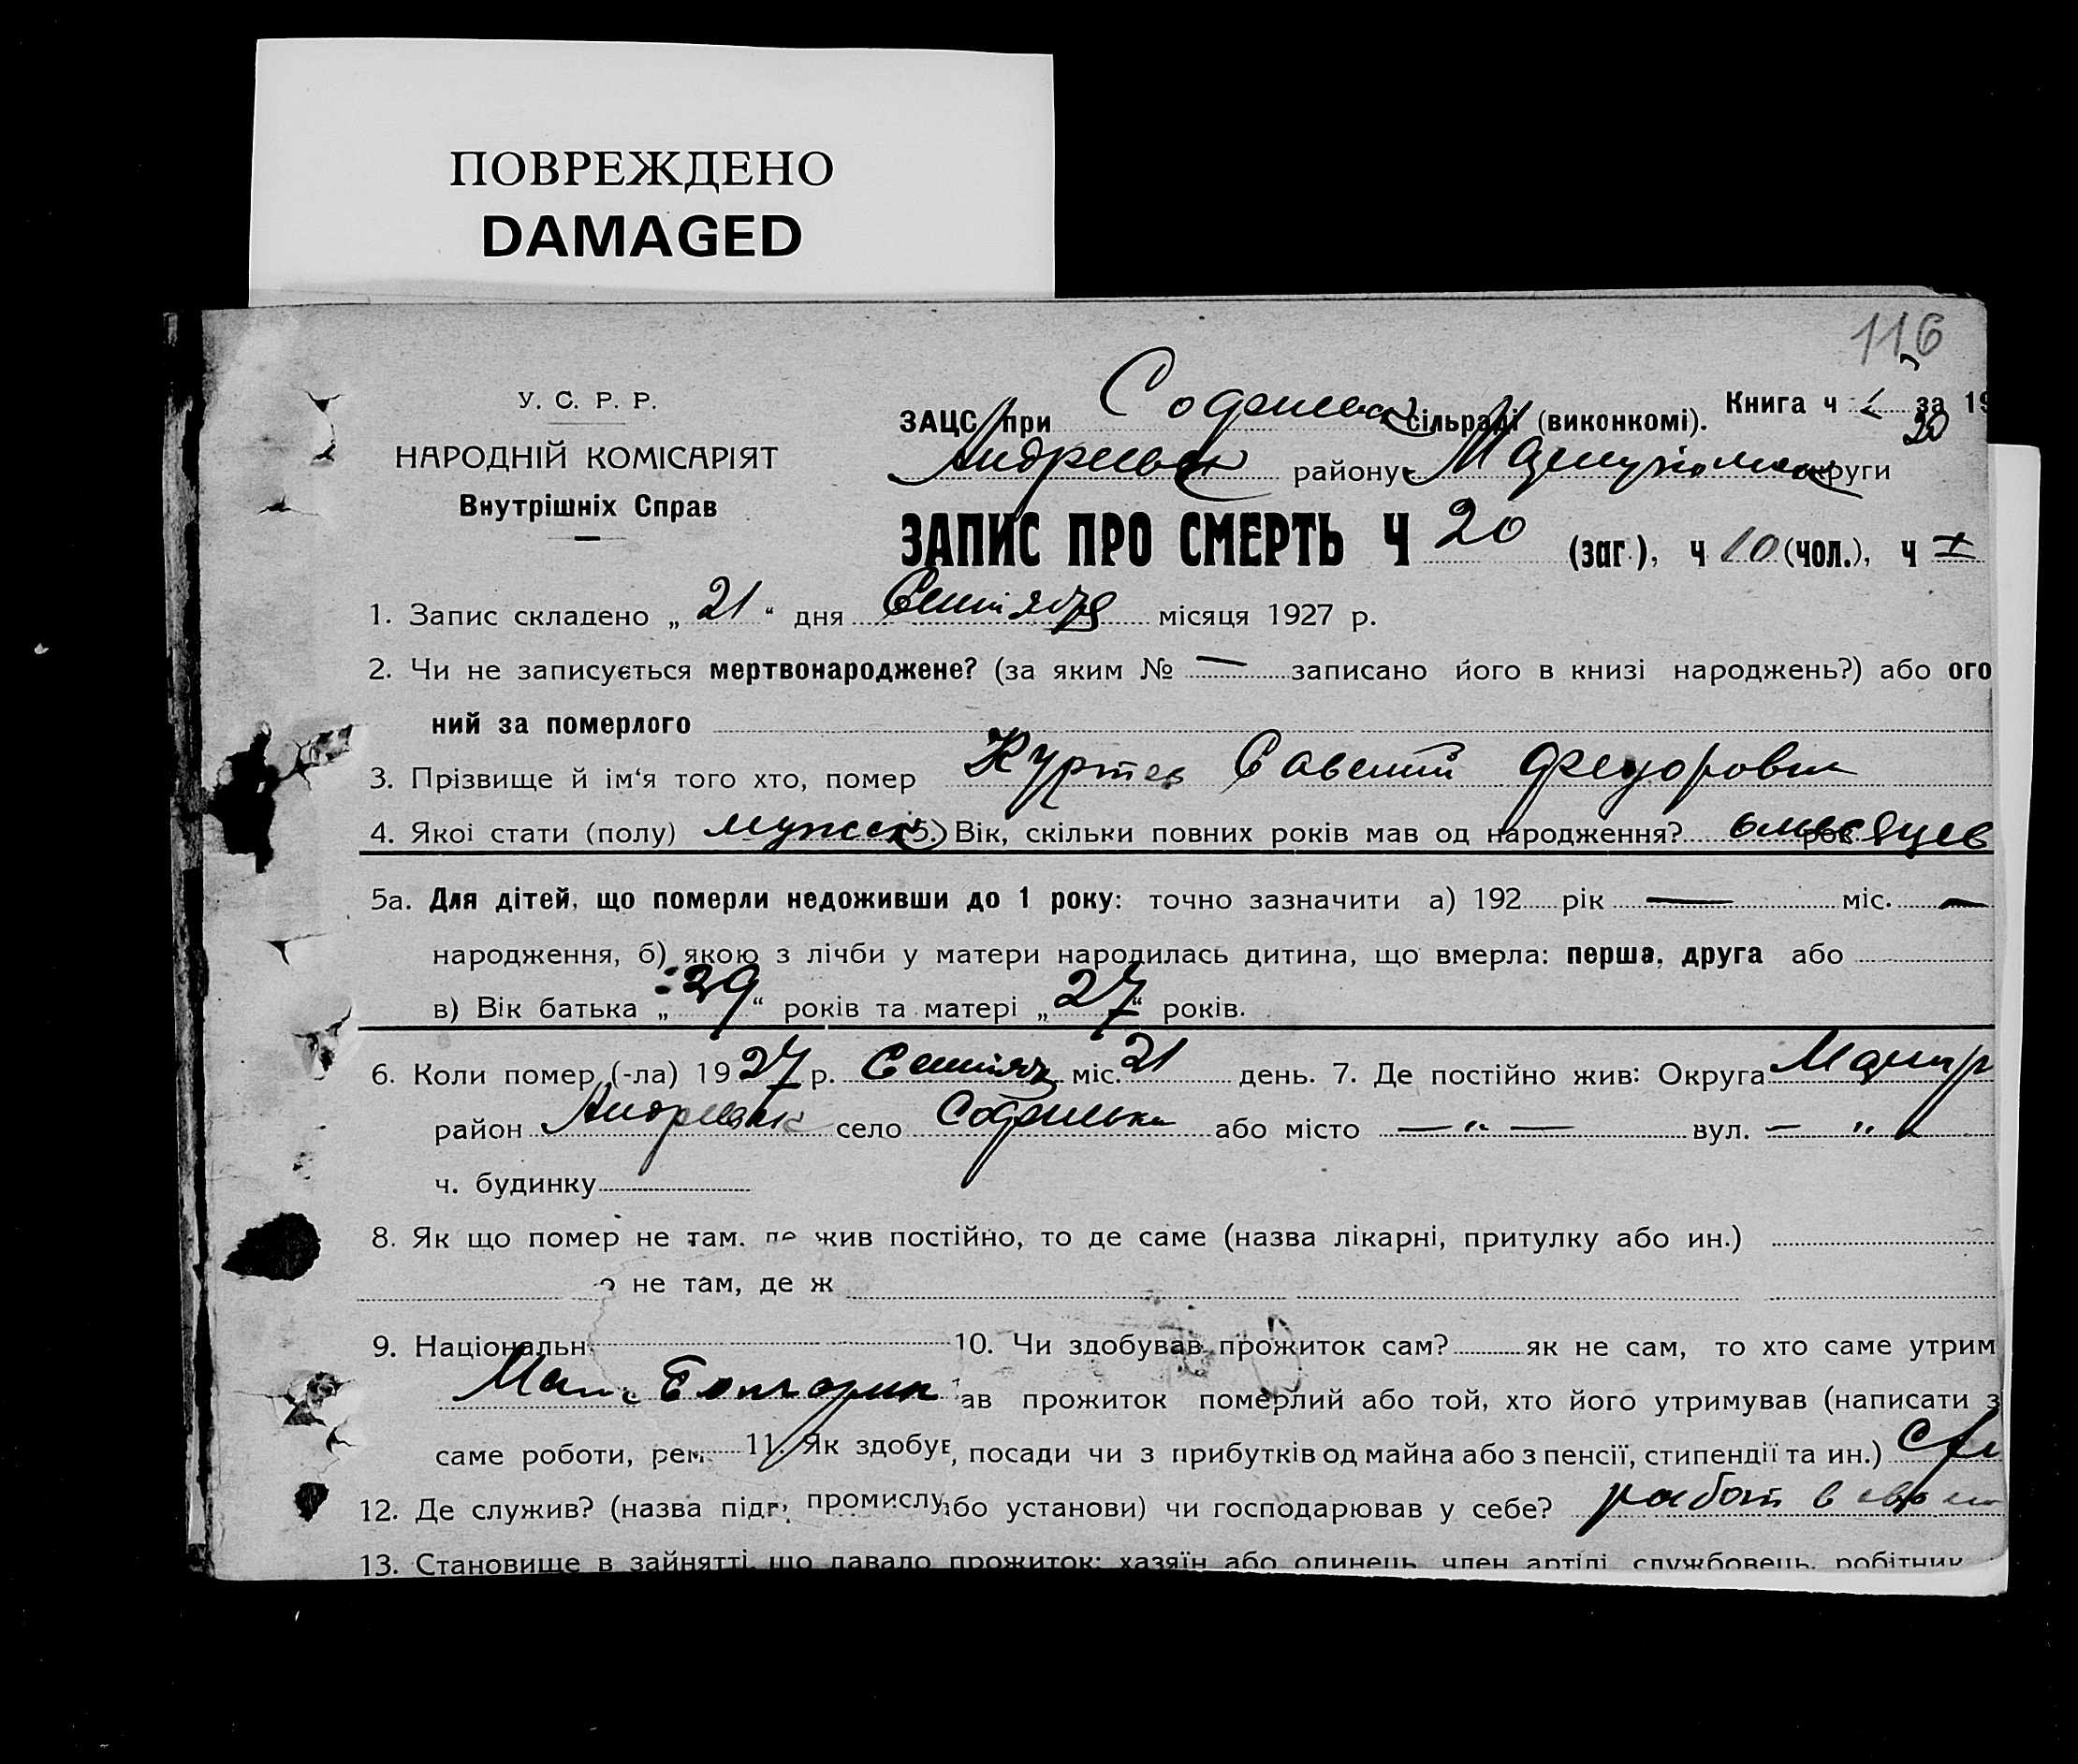 ПОВРЕЖДЕНО
DAMAGED
116
У. С. Р. Р.
НАРОДНІЙ КОМІСАРІЯТ
Внутрішніх Справ
ЗАЦС при Софиевск сільраді (виконкомі). Книга ч за 19
Андреевск району округи
ЗАПИС ПРО СМЕРТЬ Ч 20 (заг.), ч 10 (чол.), ч
1. Запис складено „ 21 “ дня Сентября місяця 1927 р.
2. Чи не записується мертвонароджене? (за яким № — записано його в книзі народжень?) або ого
ний за померлого
3. Прізвище й ім‘я того хто, помер Куртев Савелий Федорович
4. Якої стати (полу) мужск 5. Вік, скільки повних років мав од народження? 6 месяцев рок
5а. Для дітей, що померли недоживши до 1 року: точно зазначити а) 192 рік — міс. —
народження, б) якою з лічби у матери народилась дитина, що вмерла: перша, друга або
в) Вік батька „ 29 “ років та матері „ 27 “ років.
6. Коли помер (-ла) 1927 р. Сентяб міс. 21 день. 7. Де постійно жив: Округа
район Андреевск село Софиевка або місто — „ — вул. — „
ч. будинку
8. Як що помер не там, де жив постійно, то де саме (назва лікарні, притулку або ин.)
не там, де ж
9. Національн 10. Чи здобував прожиток сам? як не сам, то хто саме утрим
Болгарин ав прожиток померлий або той, хто його утримував (написати з
саме роботи, рем 11. Як здобув, посади чи з прибутків од майна або з пенсії, стипендії та ин.)
12. Де служив? (назва підп, промислу, або установи) чи господарював у себе? работ в
13. Становище в зайнятті, що давало прожиток: хазяїн або одинець, член артілі, службовець, робітник